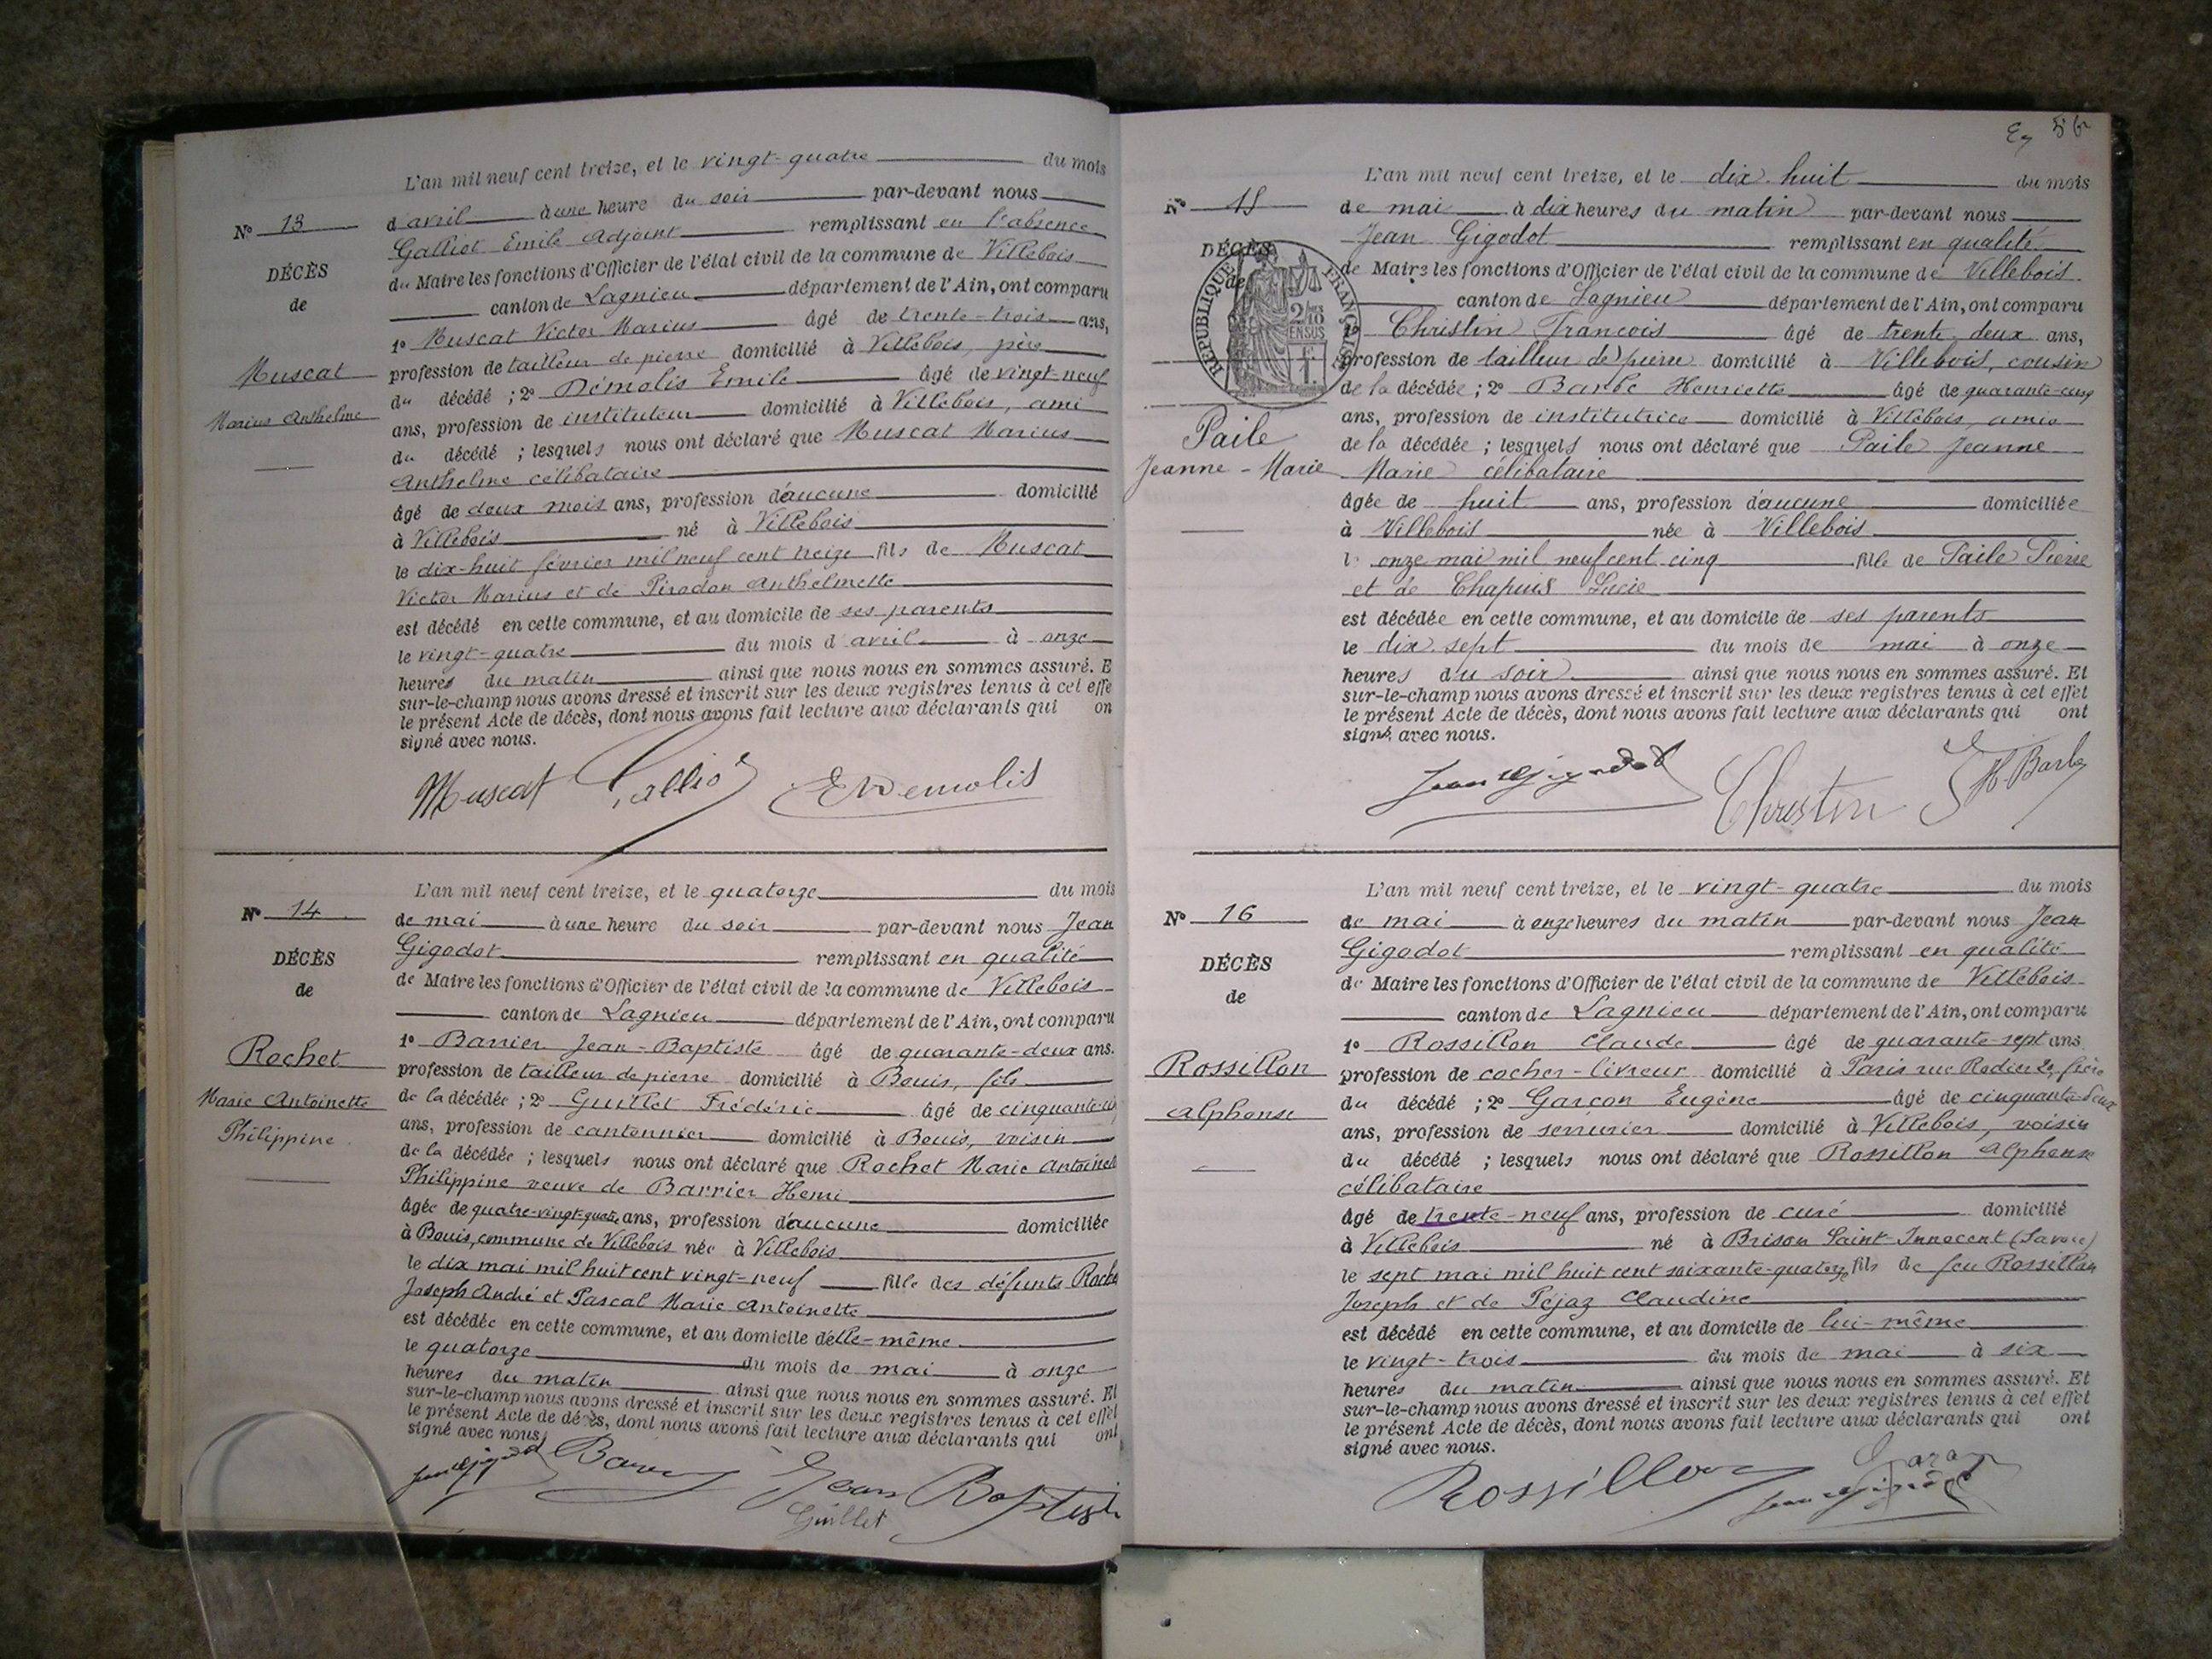 L'an mil neuf cent treize, et le vingt-quatre du mois
d'avril à une heure du soir par-devant nous
Galliot Emile Adjoint remplissant en l'absence
du Maire les fonctions d'Officier de l'état civil de la commune de Villebois
canton de Lagnieu département de l'Ain, ont comparu
1º Muscat Victor Marius âgé de trente-trois ans,
profession de tailleur de pierre domicilié à Villebois, père
du décédé ; 2º Démolis Emile âgé de vingt-neuf
ans, profession de instituteur domicilié à Villebois, ami
du décédé ; lesquels nous ont déclaré que Muscat Marius
Anthelme célibataire
âgé de deux mois ans, profession d'aucune domicilié
à Villebois né à Villebois
le dix-huit février mil neuf cent treize fils de Muscat
Victor Marius et de Pirodon Anthelmette
est décédé en cette commune, et au domicile de ses parents
le vingt-quatre du mois d'avril à onze
heures du matin ainsi que nous nous en sommes assuré. E
sur-le-champ nous avons dressé et inscrit sur les deux registres tenus à cet effe
le présent Acte de décès, dont nous avons fait lecture aux déclarants qui on
signé avec nous.
Nº 13
DÉCÈS
de
Muscat
Marius Anthelme
Muscat Galliot E Demolis
L'an mil neuf cent treize, et le quatorze du mois
de mai à une heure du soir par-devant nous Jean
Gigodot remplissant en qualité
de Maire les fonctions d'Officier de l'état civil de la commune de Villebois
canton de Lagnieu département de l'Ain, ont comparu
1º Barrier Jean-Baptiste âgé de quarante-deux ans.
profession de tailleur de pierre domicilié à Bouis, fils
de la décédée ; 2º Guillet Frédéric âgé de cinquante
ans, profession de cantonnier domicilié à Bouis, voisin
de la décédée ; lesquels nous ont déclaré que Rochet Marie Antoinette
Philippine veuve de Barrier Henri
âgée de quatre-vingt-quatre ans, profession d'aucune domiciliée
à Bouis, commune de Villebois née à Villebois
le dix mai mil huit cent vingt-neuf fille des défunts Rochet
Joseph André et Pascal Marie Antoinette
est décédée en cette commune, et au domicile d'elle-même
le quatorze du mois de mai à onze
heures du matin ainsi que nous nous en sommes assuré. Et
sur-le-champ nous avons dressé et inscrit sur les deux registres tenus à cet effet
le présent Acte de décès, dont nous avons fait lecture aux déclarants qui ont
signé avec nous.
Nº 14
DÉCÈS
de
Rochet
Marie Antoinette
Philippine
Jean Gigodot Barrier Jean Baptiste
Guillet
56
L'an mil neuf cent treize, et le dix huit du mois
de mai à dix heures du matin par-devant nous
Jean Gigodot remplissant en qualité
de Maire les fonctions d'Officier de l'état civil de la commune de Villebois
canton de Lagnieu département de l'Ain, ont comparu
1º Christin François âgé de trente deux ans,
profession de tailleur de pierre domicilié à Villebois, cousin
de la décédée ; 2º Barbe Henriette âgé de quarante-cinq
ans, profession de institutrice domicilié à Villebois, amie
de la décédée ; lesquels nous ont déclaré que Paile Jeanne
Marie célibataire
âgée de huit ans, profession d'aucune domiciliée
à Villebois née à Villebois
le onze mai mil neuf cent cinq fille de Paile Pierre
et de Chapuis Lucie
est décédée en cette commune, et au domicile de ses parents
le dix sept du mois de mai à onze
heures du soir ainsi que nous nous en sommes assuré. Et
sur-le-champ nous avons dressé et inscrit sur les deux registres tenus à cet effet
le présent Acte de décès, dont nous avons fait lecture aux déclarants qui ont
signé avec nous.
Nº 15
DÉCÈS
de
RÉPUBLIQUE FRANÇAISE
2/10
EN SUS
Paile
Jeanne-Marie
Jean Gigodot Christin H. Barbe
L'an mil neuf cent treize, et le vingt-quatre du mois
de mai à onze heures du matin par-devant nous Jean
Gigodot remplissant en qualité
de Maire les fonctions d'Officier de l'état civil de la commune de Villebois
canton de Lagnieu département de l'Ain, ont comparu
1º Rossillon Claude âgé de quarante-sept ans
profession de cocher-livreur domicilié à Paris rue Rodier frère
du décédé ; 2º Garçon Eugène âgé de cinquante-deux
ans, profession de serrurier domicilié à Villebois, voisin
du décédé ; lesquels nous ont déclaré que Rossillon Alphonse
célibataire
âgé de trente-neuf ans, profession de curé domicilié
à Villebois né à Brison Saint-Innocent (Savoie)
le sept mai mil huit cent soixante-quatorze fils de feu Rossillon
Joseph et de Péjaz Claudine
est décédé en cette commune, et au domicile de lui-même
le vingt-trois du mois de mai à six
heures du matin ainsi que nous nous en sommes assuré. Et
sur-le-champ nous avons dressé et inscrit sur les deux registres tenus à cet effet
le présent Acte de décès, dont nous avons fait lecture aux déclarants qui ont
signé avec nous.
Nº 16
DÉCÈS
de
Rossillon
Alphonse
Rossillon Jean Gigodot